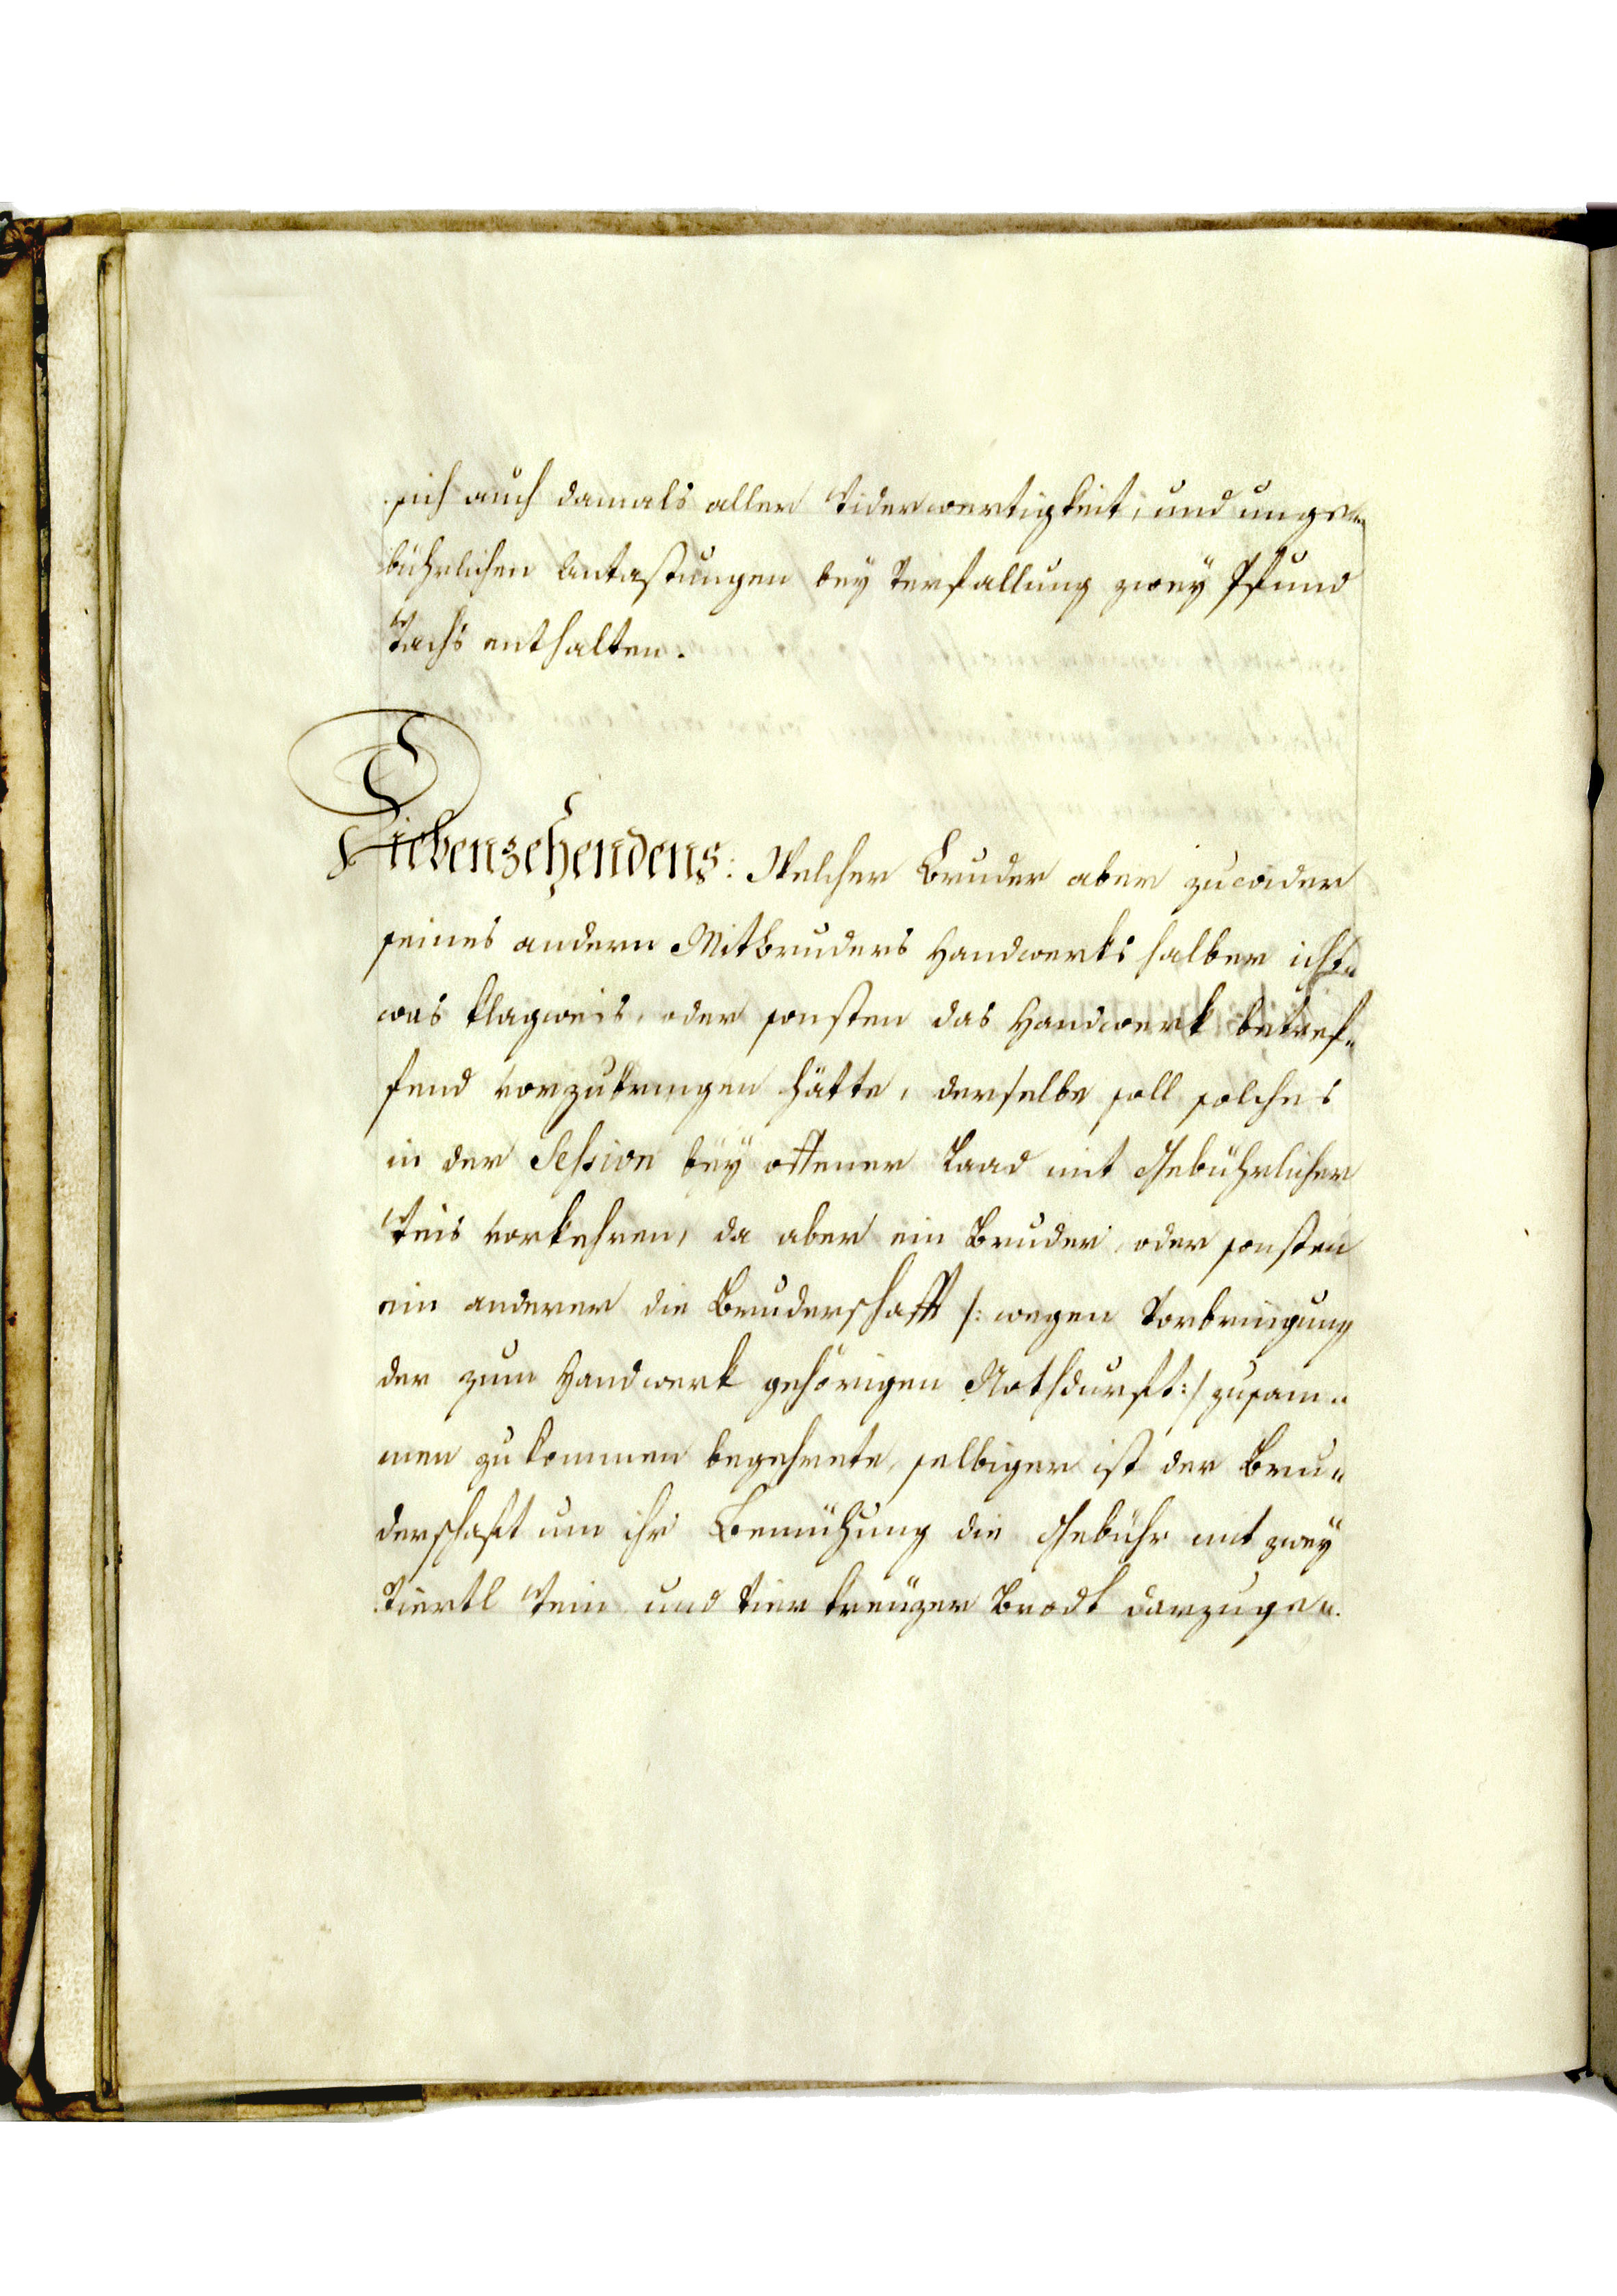 sich auch damals aller Widerwertigkeit, und unge„
bührlichen Antastungen bey Verfallung zwey Pfund
Wachs enthalten.
Siebenzehendens: Welcher Bruder aber zuwider
seines andern Mitbruders Handwerks halber icht„
was klagweis, oder sonsten das Handwerk betref„
fend vorzubringen hätte, derselbe soll solches
in der Session bëy offener Laad mit Gebührlicher
Weis vorkehren, da aber ein Bruder, oder sonsten
ein anderer die Bruderschafft /: wegen Vorbringung
der zum Handwerk gehörigen Nothdurft :/ zusam„
men zu kommen begehrete, selbiger ist der Bru„
derschaft um ihr Bemühung die Gebühr mit zwey
Viertl Wein und vier kreuzer Brodt darzuge„